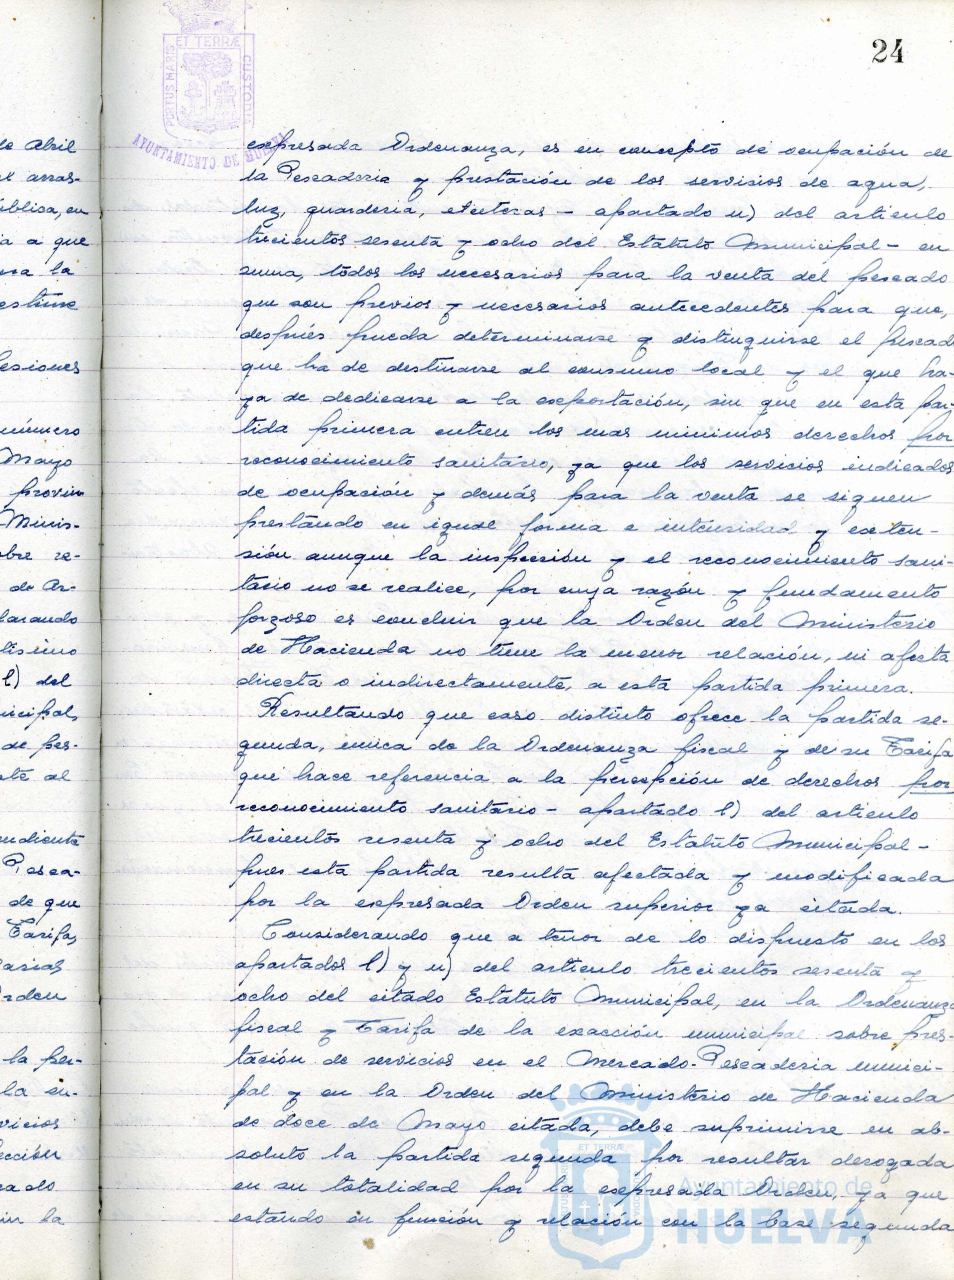 24
PORTUS MARIS ET TERRÆ CUSTODIA
AYUNTAMIENTO DE HUELVA
de Abril
arras-
ública, en
a que
la
estime
esiones
número
Mayo
provin
Minis-
obre re-
de Ar-
larando
lisimo
l) del
nicipal,
de pes-
al
ndiente
Pesca-
de que
Tarifa,
Orden
la per-
la en-
vicios
ección
cado
la
expresada Ordenanza, es en concepto de ocupación de
la Pescaderia y prestación de los servicios de agua,
luz, guarderia, etcéteras - apartado u) del articulo
trecientos sesenta y ocho del Estatuto Municipal - en
suma, todos los necesarios para la venta del pescado
que son previos y necesarios antecedentes para que,
después pueda determinarse y distinguirse el pescado
que ha de destinarse al consumo local y el que ha-
ya de dedicarse a la exportación, sin que en esta par-
tida primera entren los mas minimos derechos por
reconocimiento sanitario, ya que los servicios indicados
de ocupación y demás para la venta se siguen
prestando en igual forma e intensidad y exten-
sión aunque la inspección y el reconocimiento sani-
tario no se realice, por cuya razón y fundamento
forzoso es concluir que la Orden del Ministerio
de Hacienda no tiene la menor relación, ni afecta
directa o indirectamente, a esta partida primera.
Resultando que caso distinto ofrece la partida se-
gunda, unica de la Ordenanza fiscal y de su Tarifa
que hace referencia a la percepción de derechos por
reconocimiento sanitario - apartado l) del articulo
trecientos sesenta y ocho del Estatuto Municipal -
pues esta partida resulta afectada y modificada
por la expresada Orden superior ya citada.
Considerando que a tenor de lo dispuesto en los
apartados l) y u) del articulo trecientos sesenta y
ocho del citado Estatuto Municipal, en la Ordenanza
fiscal y Tarifa de la exacción municipal sobre pres-
tación de servicios en el Mercado-Pescaderia munici-
pal y en la Orden del Ministerio de Hacienda
de doce de Mayo citada, debe suprimirse en ab-
soluto la partida segunda por resultar derogada
en su totalidad por la expresada Orden, ya que
estando en función y relación con la base segunda
ET TERRÆ
Ayuntamiento de
HUELVA